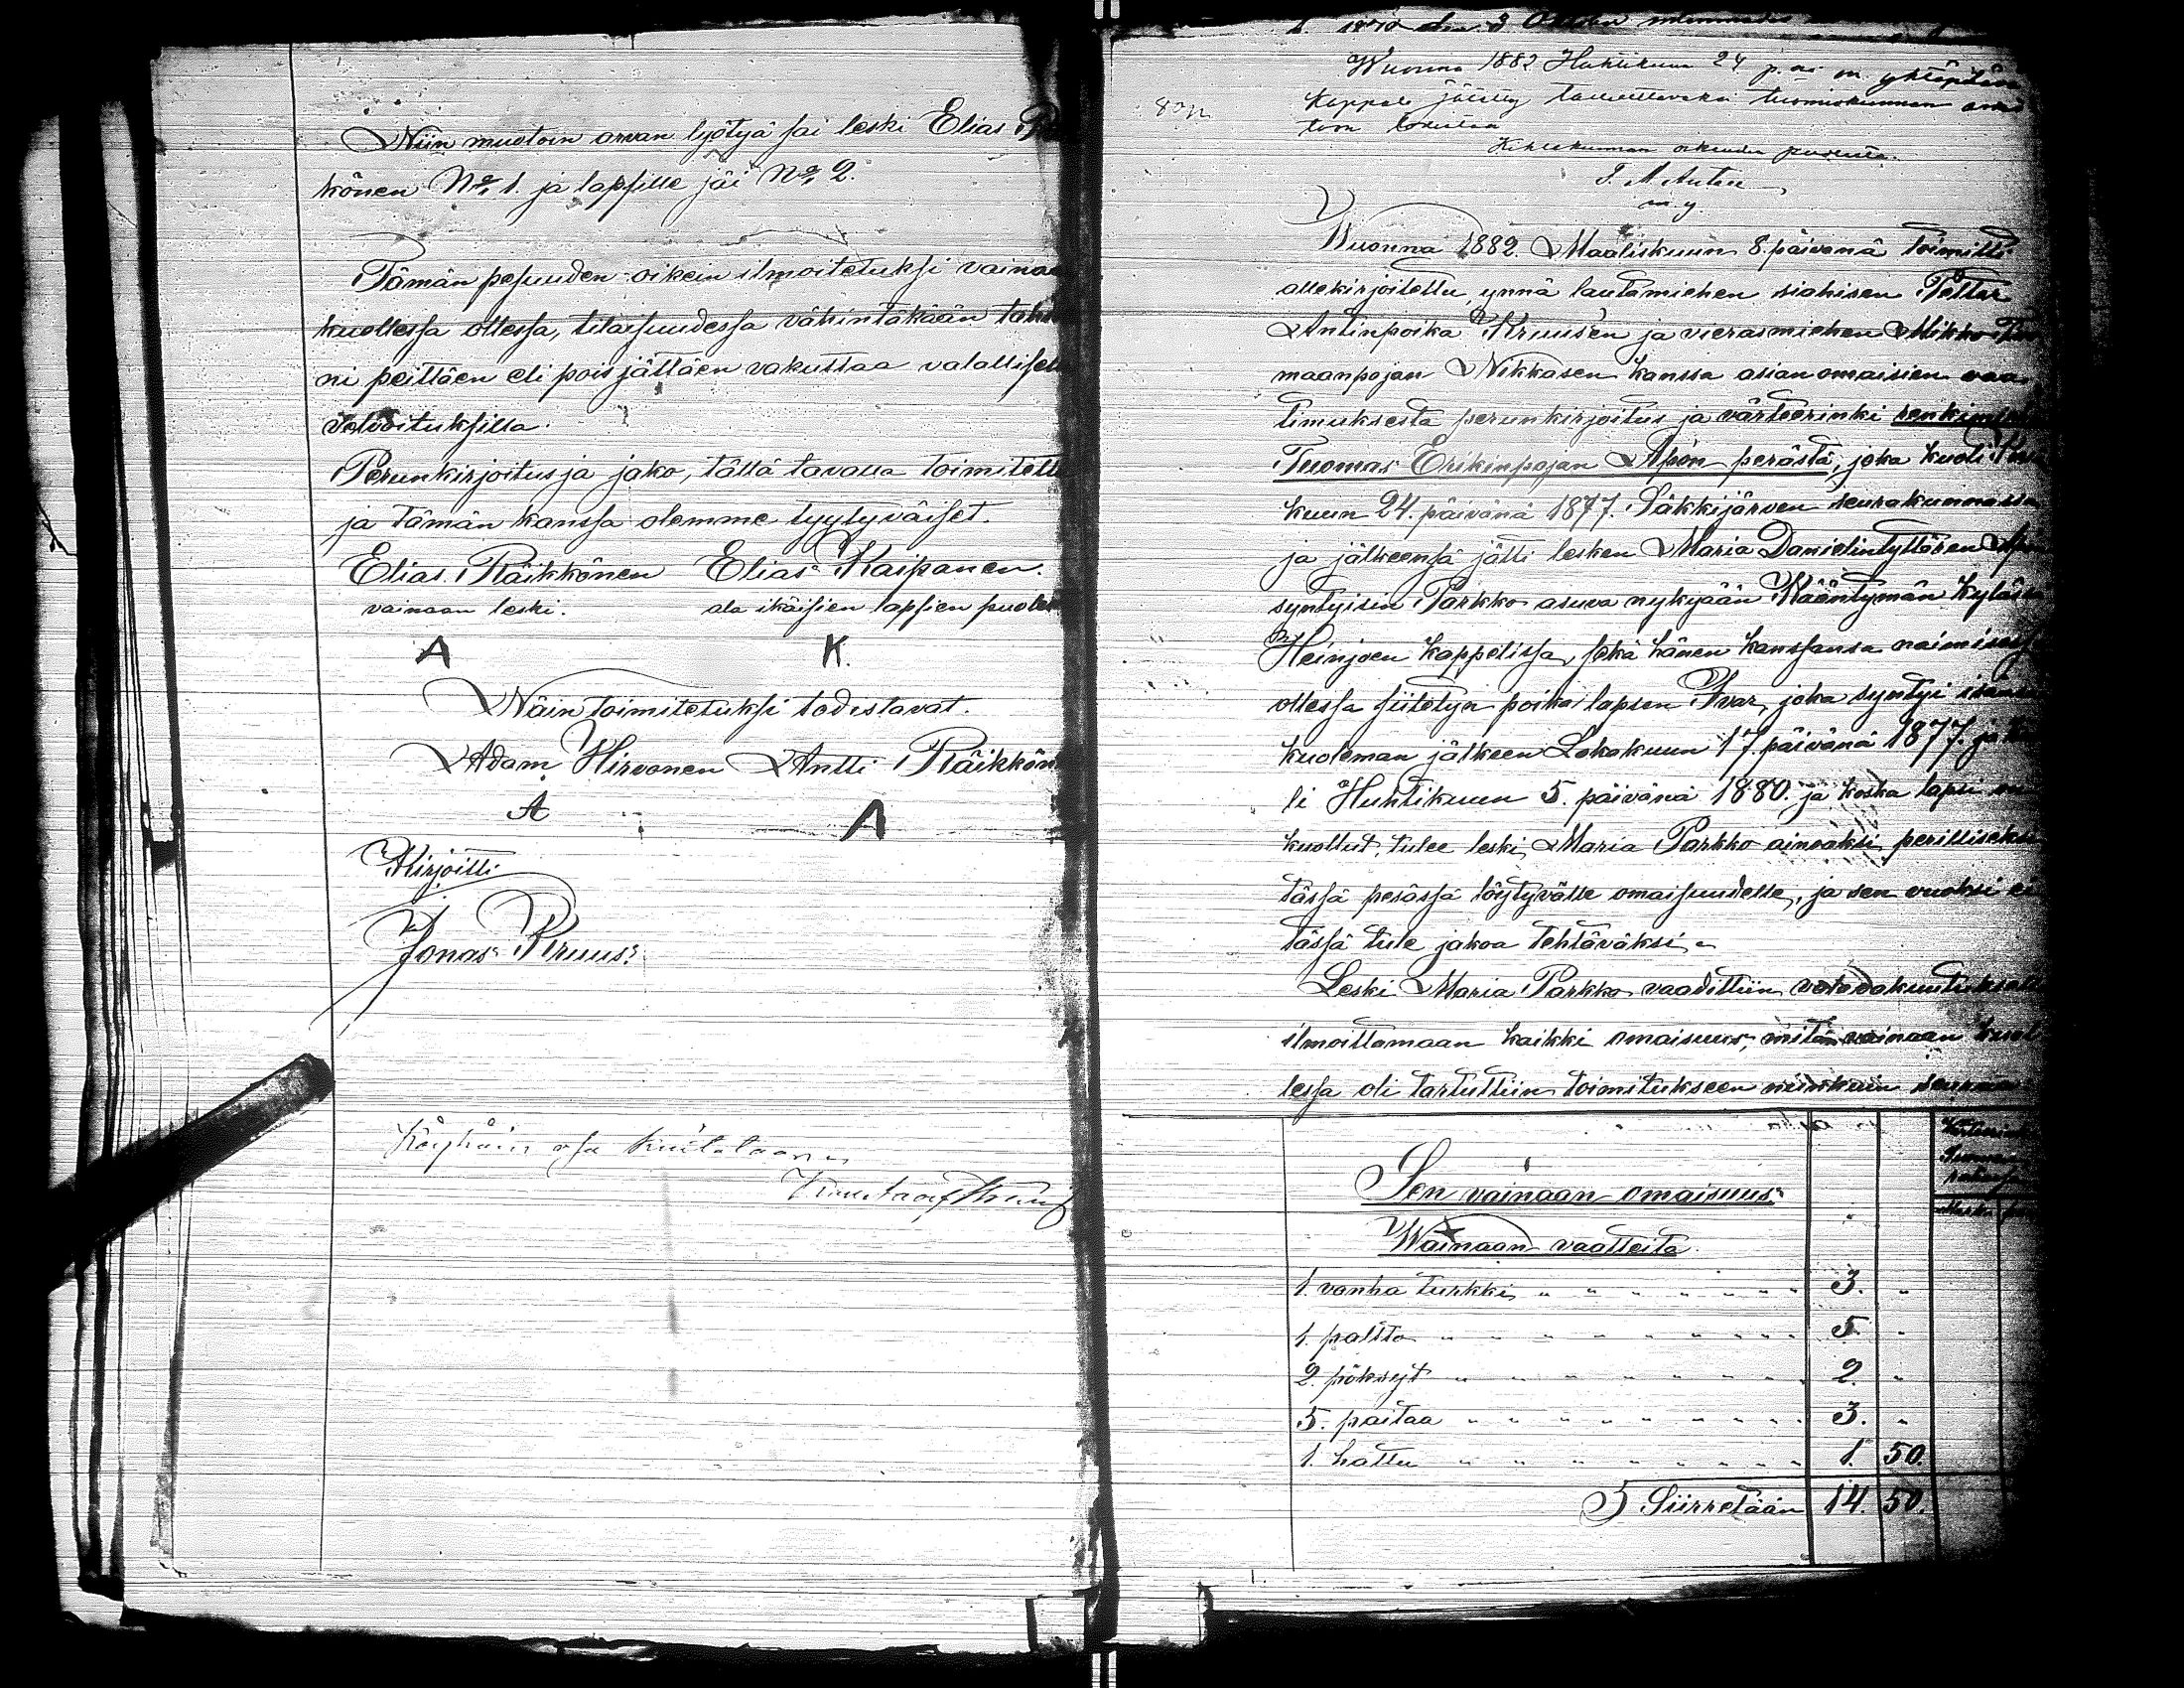 Niin muotoin arvan lyötyä sai leski Elias
könen No 1. ja lapsille jäi No 2.
Tämän pesuuden oikein ilmoitetuksi vainaan
kuollessa ollessa, tilaisuudessa vähintäkään
ni peittäen eli pois jättäen vakuttaa valallisella
velvoituksilla.
Perunkirjoitus ja jako, tällä tavalla toimitettu
ja tämän kanssa olemme tyytyväiset.
Elias Räikkönen Elias Kaipanen.
vainaan leski. ala ikäisien lapsien puolesta
A K.
Näin toimitetuksi todistavat.
Adam Hirvonen Antti Räikkönen
A A
Kirjoitti
Jonas Kruus.
Köyhäin osa kuitataan
1882 den 3
Wuonna 1882 Huhtikuun 24 p. yhtäpitävä
Kappale jätetty talletettavaksi tuomiokunnan
Kihlakunnan oikeuden puolesta.
Wuonna 1882. Maaliskuun 8. päivänä toimitti
allekirjoitettu, ynnä lautamiehen siahisen Pettar
Antinpoika Kruusen ja vierasmiehen Mikko
maanpojan Nikkasen kanssa asianomaisien vaa
timuksesta perunkirjoitus ja värteerinki renkimiehen
Tuomas Erikinpojan Apon perästä, joka kuoli
kuun 24. päivänä 1877. Säkkijärven seurakunnassa
ja jälkeensä jätti lesken Maria Danielintyttären
syntyisin Parkko asuva nykyään Kääntymän kylässä
Heinjoen kappelissa, sekä hänen kanssansa naimisessa
ollessa siitetyn poika lapsen Ivar, joka syntyi isänsä
kuoleman jälkeen Lokakuun 17. päivänä 1877. ja kuo
li Huhtikuun 5. päivänä 1880. ja koska lapsi on
kuollut, tulee leski Maria Parkko ainoaksi perilliseksi
tässä pesässä löytyvälle omaisuudelle, ja sen vuoksi ei
tässä tule jakoa tehtäväksi.
Leski Maria Parkko vaadittiin valavakuutuksella
ilmoittamaan kaikki omaisuus, mitä vainaan kuol
lessa oli tartuttiin toimitukseen niinkuin seuraa
Sen vainaan omaisuus.
Wainaan vaatteita.
1. vanha turkki " " " " " " 3. "
1. paltto " " " " " " " 5. "
2. pöksyt " " " " " " " 2. "
5. paitaa " " " " " " " 3. "
1. hattu " " " " " " " 1. 50.
Siirretään 14. 50.